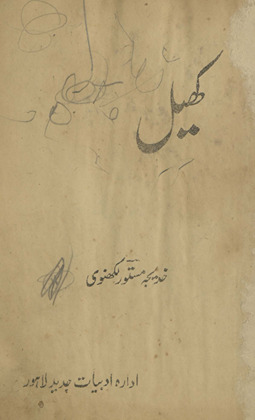 کھیل
خدیجہ مستور لکھنوی
ادارہ ادبیات جدید لاہور